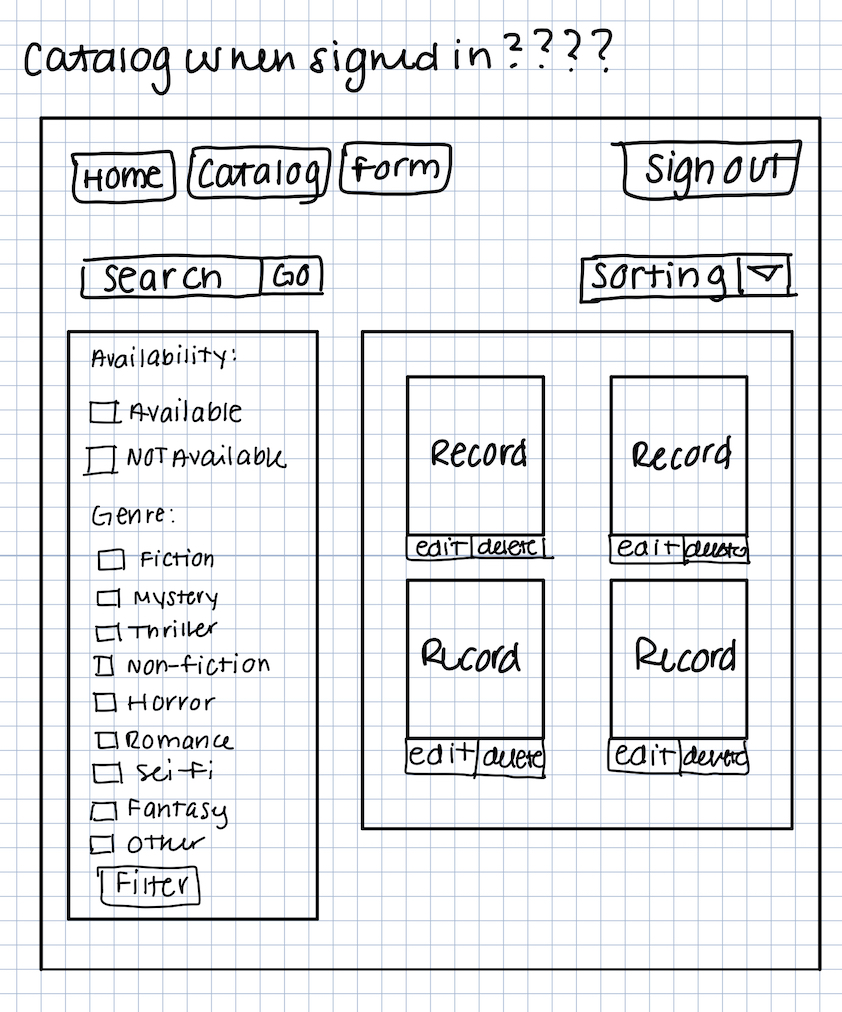 Catalog when signed in ????
Home Catalog Form Sign out
Search GO Sorting
Availability:
Available
NOT Available
Genre:
Fiction
Mystery
Thriller
Non-fiction
Horror
Romance
Sci-fi
Fantasy
Other
Filter
Record Record
edit delete edit delete
Record Record
edit delete edit delete